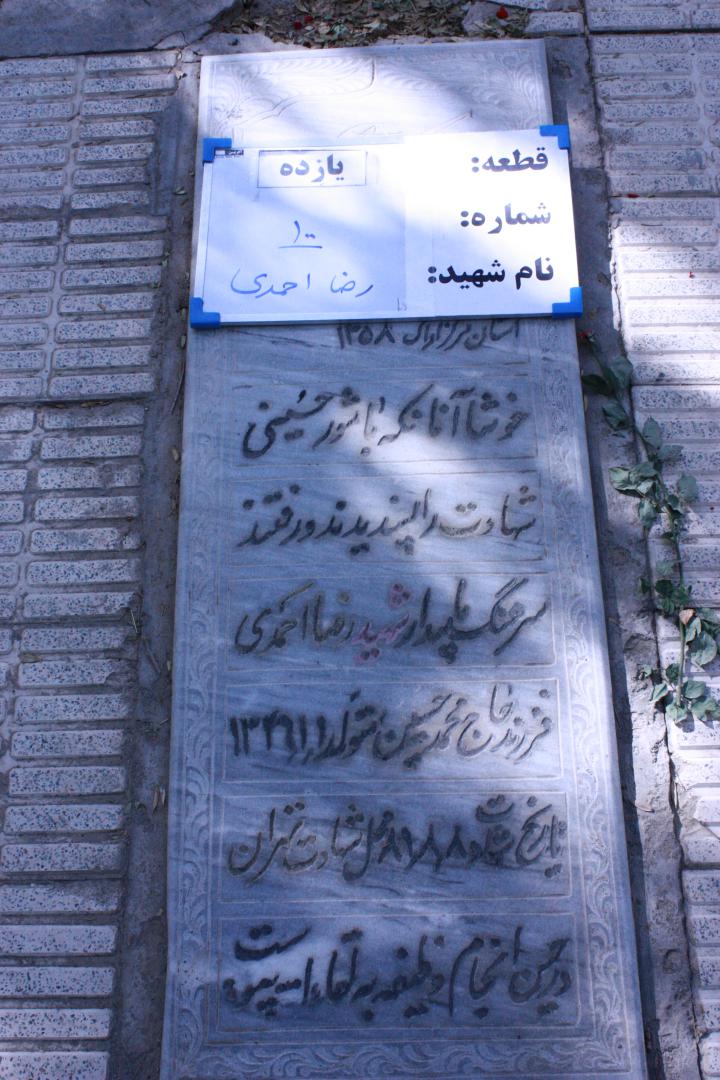 قطعه: یازده
شماره: ۱۰
نام شهید: رضا احمدی
۱۳۵۸
خوشا آنانکه با شور حسینی
شهادت را پسندیدند و رفتند
سرهنگ پاسدار شهید رضا احمدی
فرزند حاج محمد حسین متولد
تاریخ شهادت محل شهادت تهران
در حین انجام وظیفه به لقاءالله پیوست